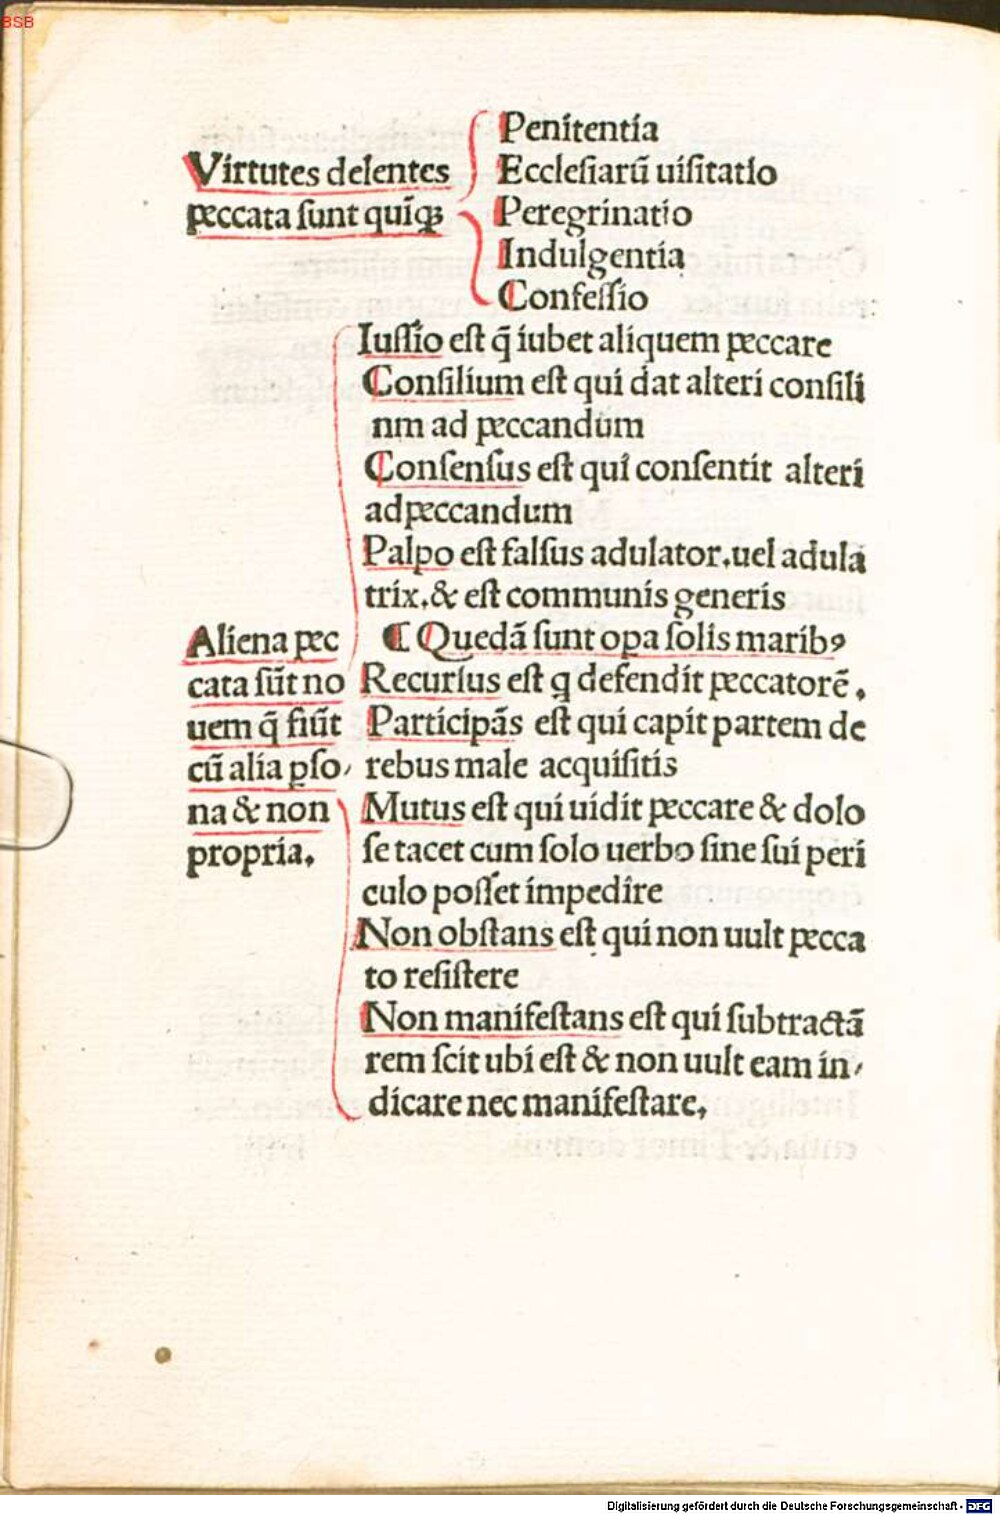 BSB
Virtutes delentes
peccata sunt quīqꝫ
Penitentia
Ecclesiarū uisitatio
Peregrinatio
Indulgentia
Confessio
Aliena pec
cata sūt no
uem q̄ fiūt
cū alia ꝑso⸗
na & non
propria.
Iussio est q̄ iubet aliquem peccare
Consilium est qui dat alteri consili
nm ad peccandum
Consensus est qui consentit alteri
ad peccandum
Palpo est falsus adulator.uel adula
trix.& est communis generis
¶ Quedā sunt opa solis maribꝰ
Recursus est q defendit peccatorē.
Participās est qui capit partem de
rebus male acquisitis
Mutus est qui uidit peccare & dolo
se tacet cum solo uerbo sine sui peri
culo posset impedire
Non obstans est qui non uult pecca
to resistere
Non manifestans est qui subtractā
rem scit ubi est & non uult eam in⸗
dicare nec manifestare.
Digitalisierung gefördert durch die Deutsche Forschungsgemeinschaft - DFG